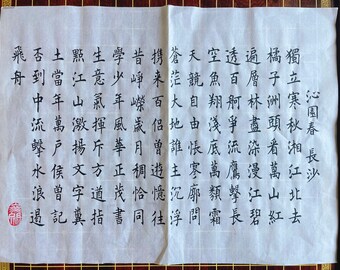 沁園春 長沙
獨立寒秋湘江北去
橘子洲頭看萬山紅
遍層林盡染漫江碧
透百舸爭流鷹擊長
空魚翔淺底萬類霜
天競自由悵寥廓問
蒼茫大地誰主沉浮
携来百侶曾遊憶往
昔崢嶸歲月稠恰同
學少年風華正茂書
生意氣揮斥方遒指
點江山激揚文字糞
土當年萬戶侯曾記
否到中流擊水浪遏
飛舟